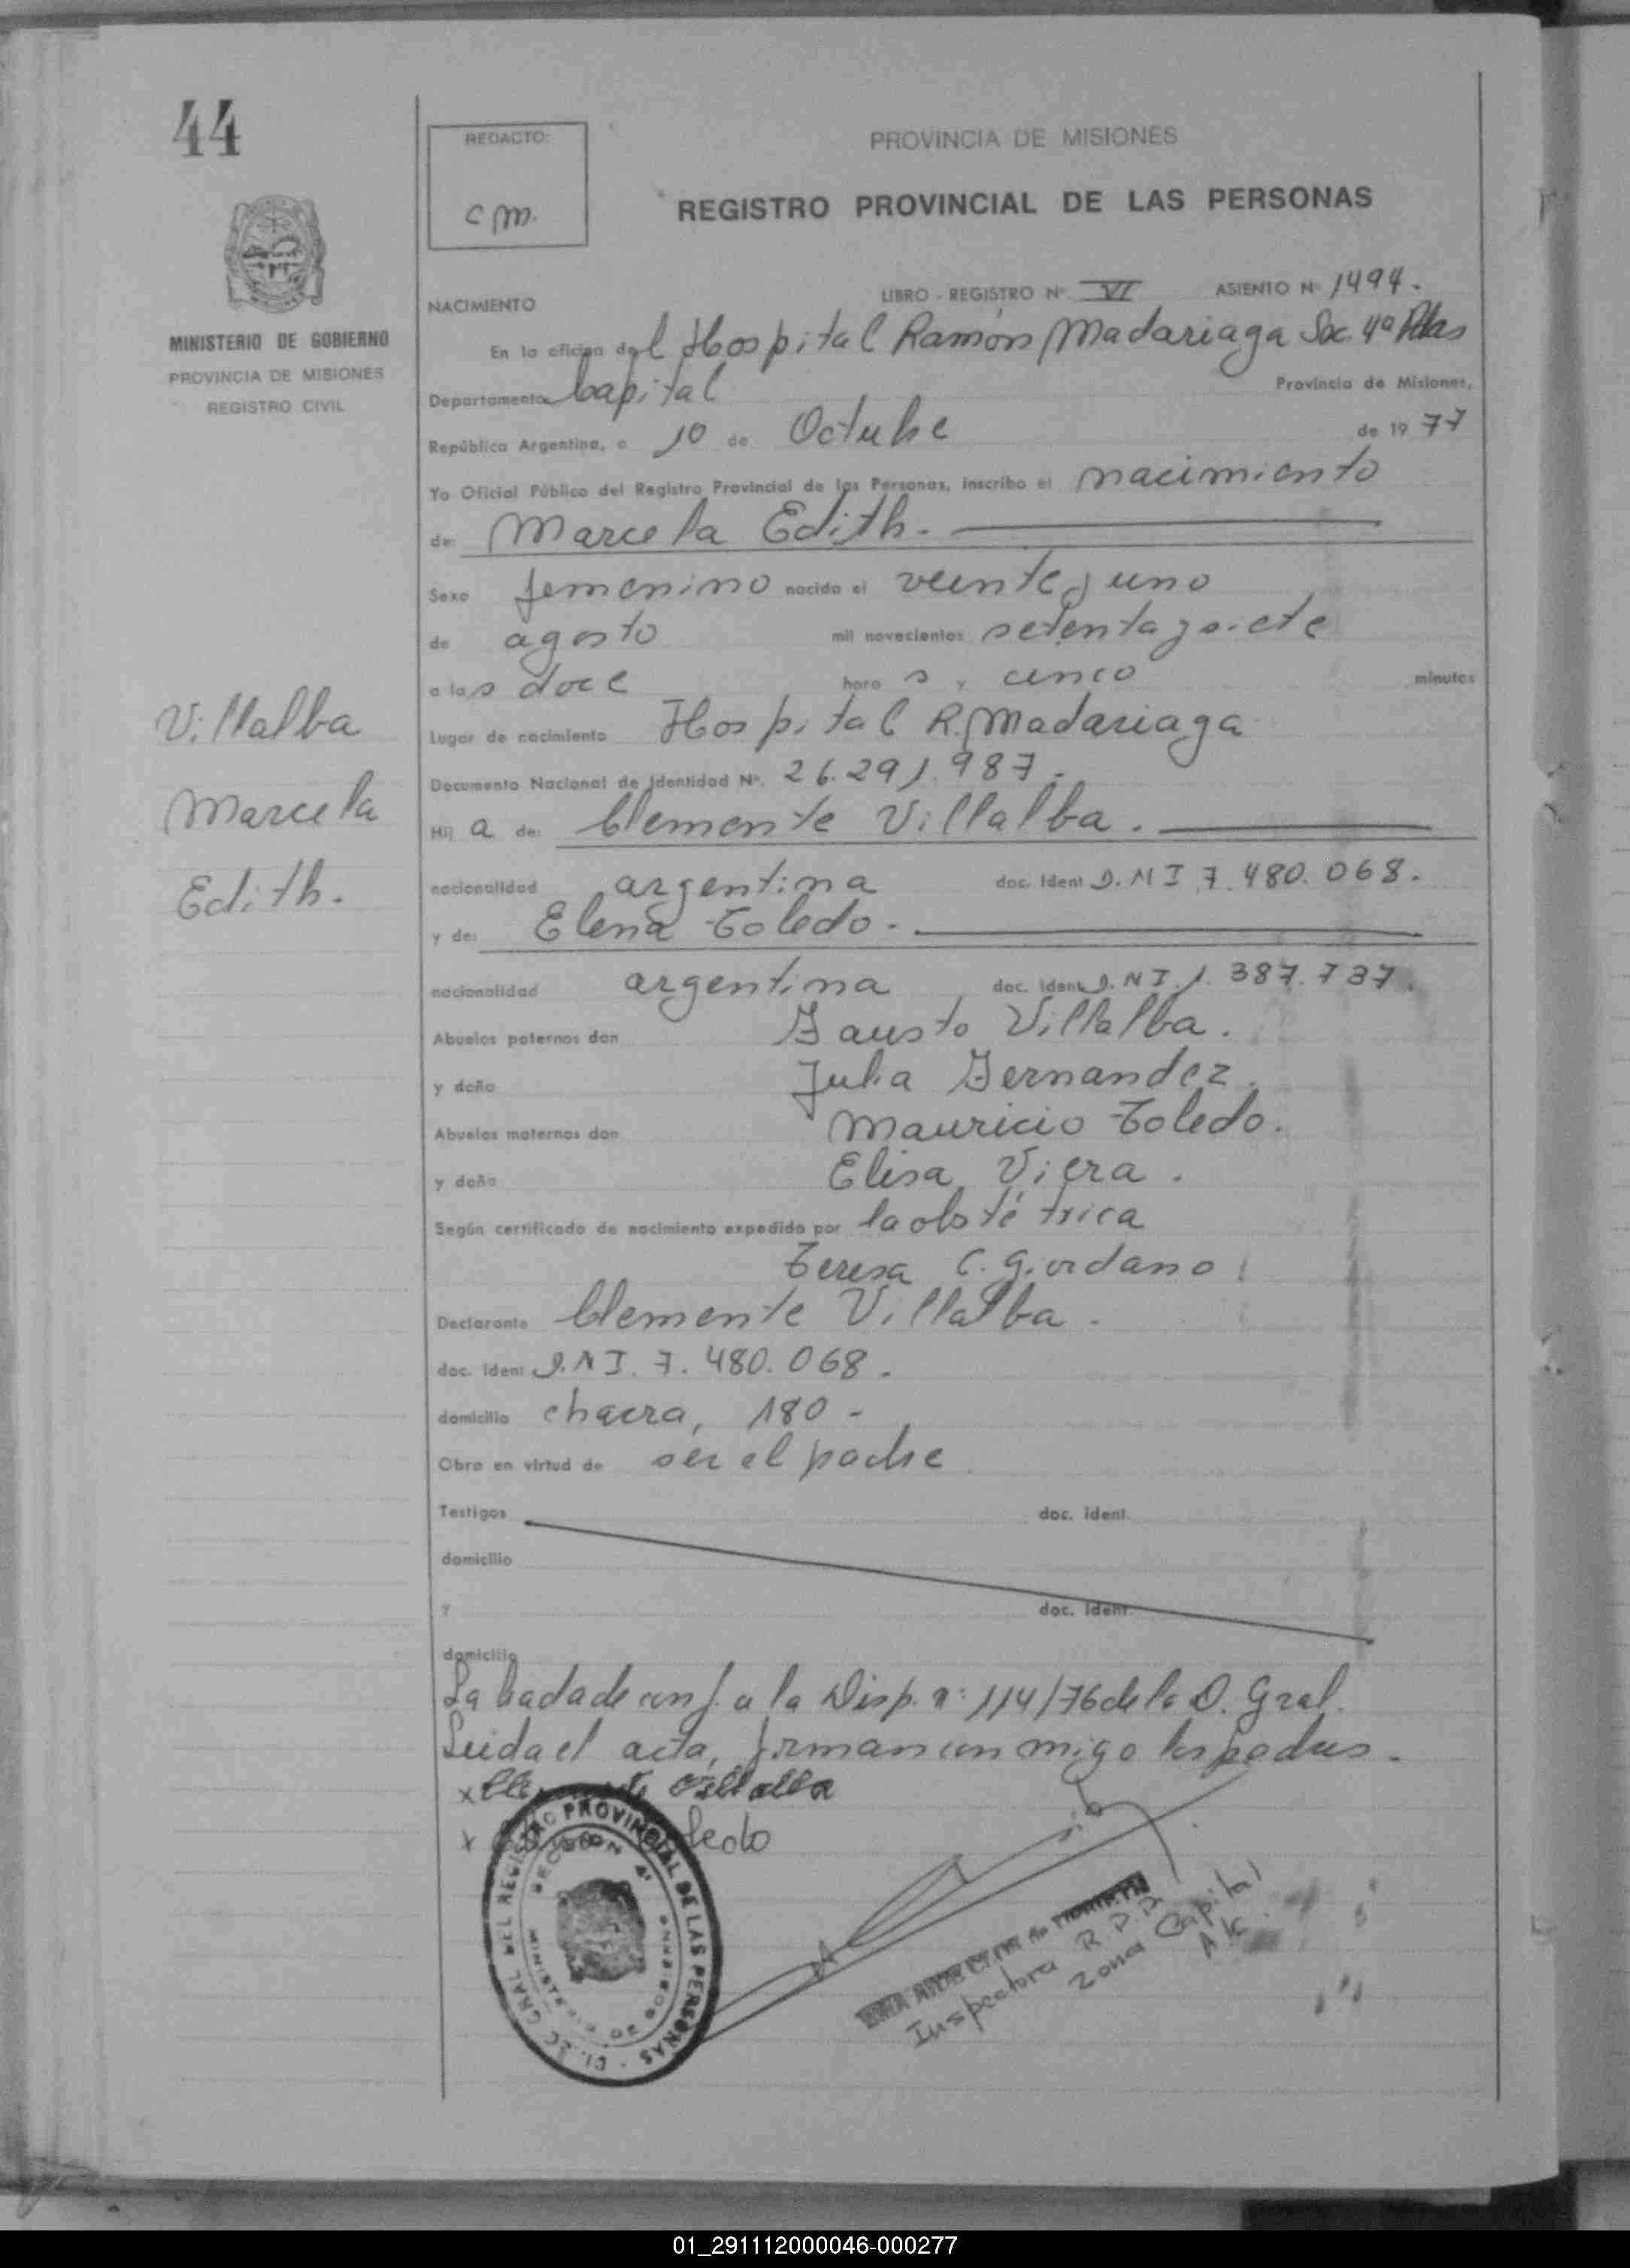 44
REDACTO:
C M.
PROVINCIA DE MISIONES
REGISTRO PROVINCIAL DE LAS PERSONAS
MINISTERIO DE GOBIERNO
PROVINCIA DE MISIONES
REGISTRO CIVIL
NACIMIENTO
LIBRO - REGISTRO Nº VI ASIENTO Nº 1494.
En la oficina del Hospital Ramón Madariaga Sec. 4ª Pdas
Departamento Capital Provincia de Misiones,
República Argentina, a 10 de Octubre de 1977
Yo Oficial Público del Registro Provincial de las Personas, inscribo el nacimiento
de: Marcela Edith.
Sexo femenino nacido el veinte y uno
de agosto mil novecientos setenta y siete
a las doce hora s y cinco minutos
Lugar de nacimiento Hospital R. Madariaga
Documento Nacional de Identidad Nº. 26.291.987.
Hij a de: Clemente Villalba.
nacionalidad argentina doc. Ident D.N I 7.480.068.
y de: Elena Toledo.
nacionalidad argentina doc. Ident D.N I. 1.387.737.
Abuelos paternos don Fausto Villalba.
y doña Julia Fernandez.
Abuelos maternos don Mauricio Toledo.
y doña Elisa Viera.
Según certificado de nacimiento expedido por la obstétrica
Teresa C. Giordano
Declarante Clemente Villalba.
doc. Ident D.N I. 7.480.068.
domicilio chacra, 180 -
Obra en virtud de ser el padre
Testigos doc. ident.
domicilio
Y doc. Ident.
domicilio
Labrada de conf. a la Disp. nº 114/76 de la D. Gral.
Leida el acta, firman conmigo los padres.
x Villalba
x
Villalba
Marcela
Edith.
REGISTRO PROVINCIAL DE LAS PERSONAS
SECCION 4ª
Inspectora R.P.P.
Zona Capital
01_291112000046-000277